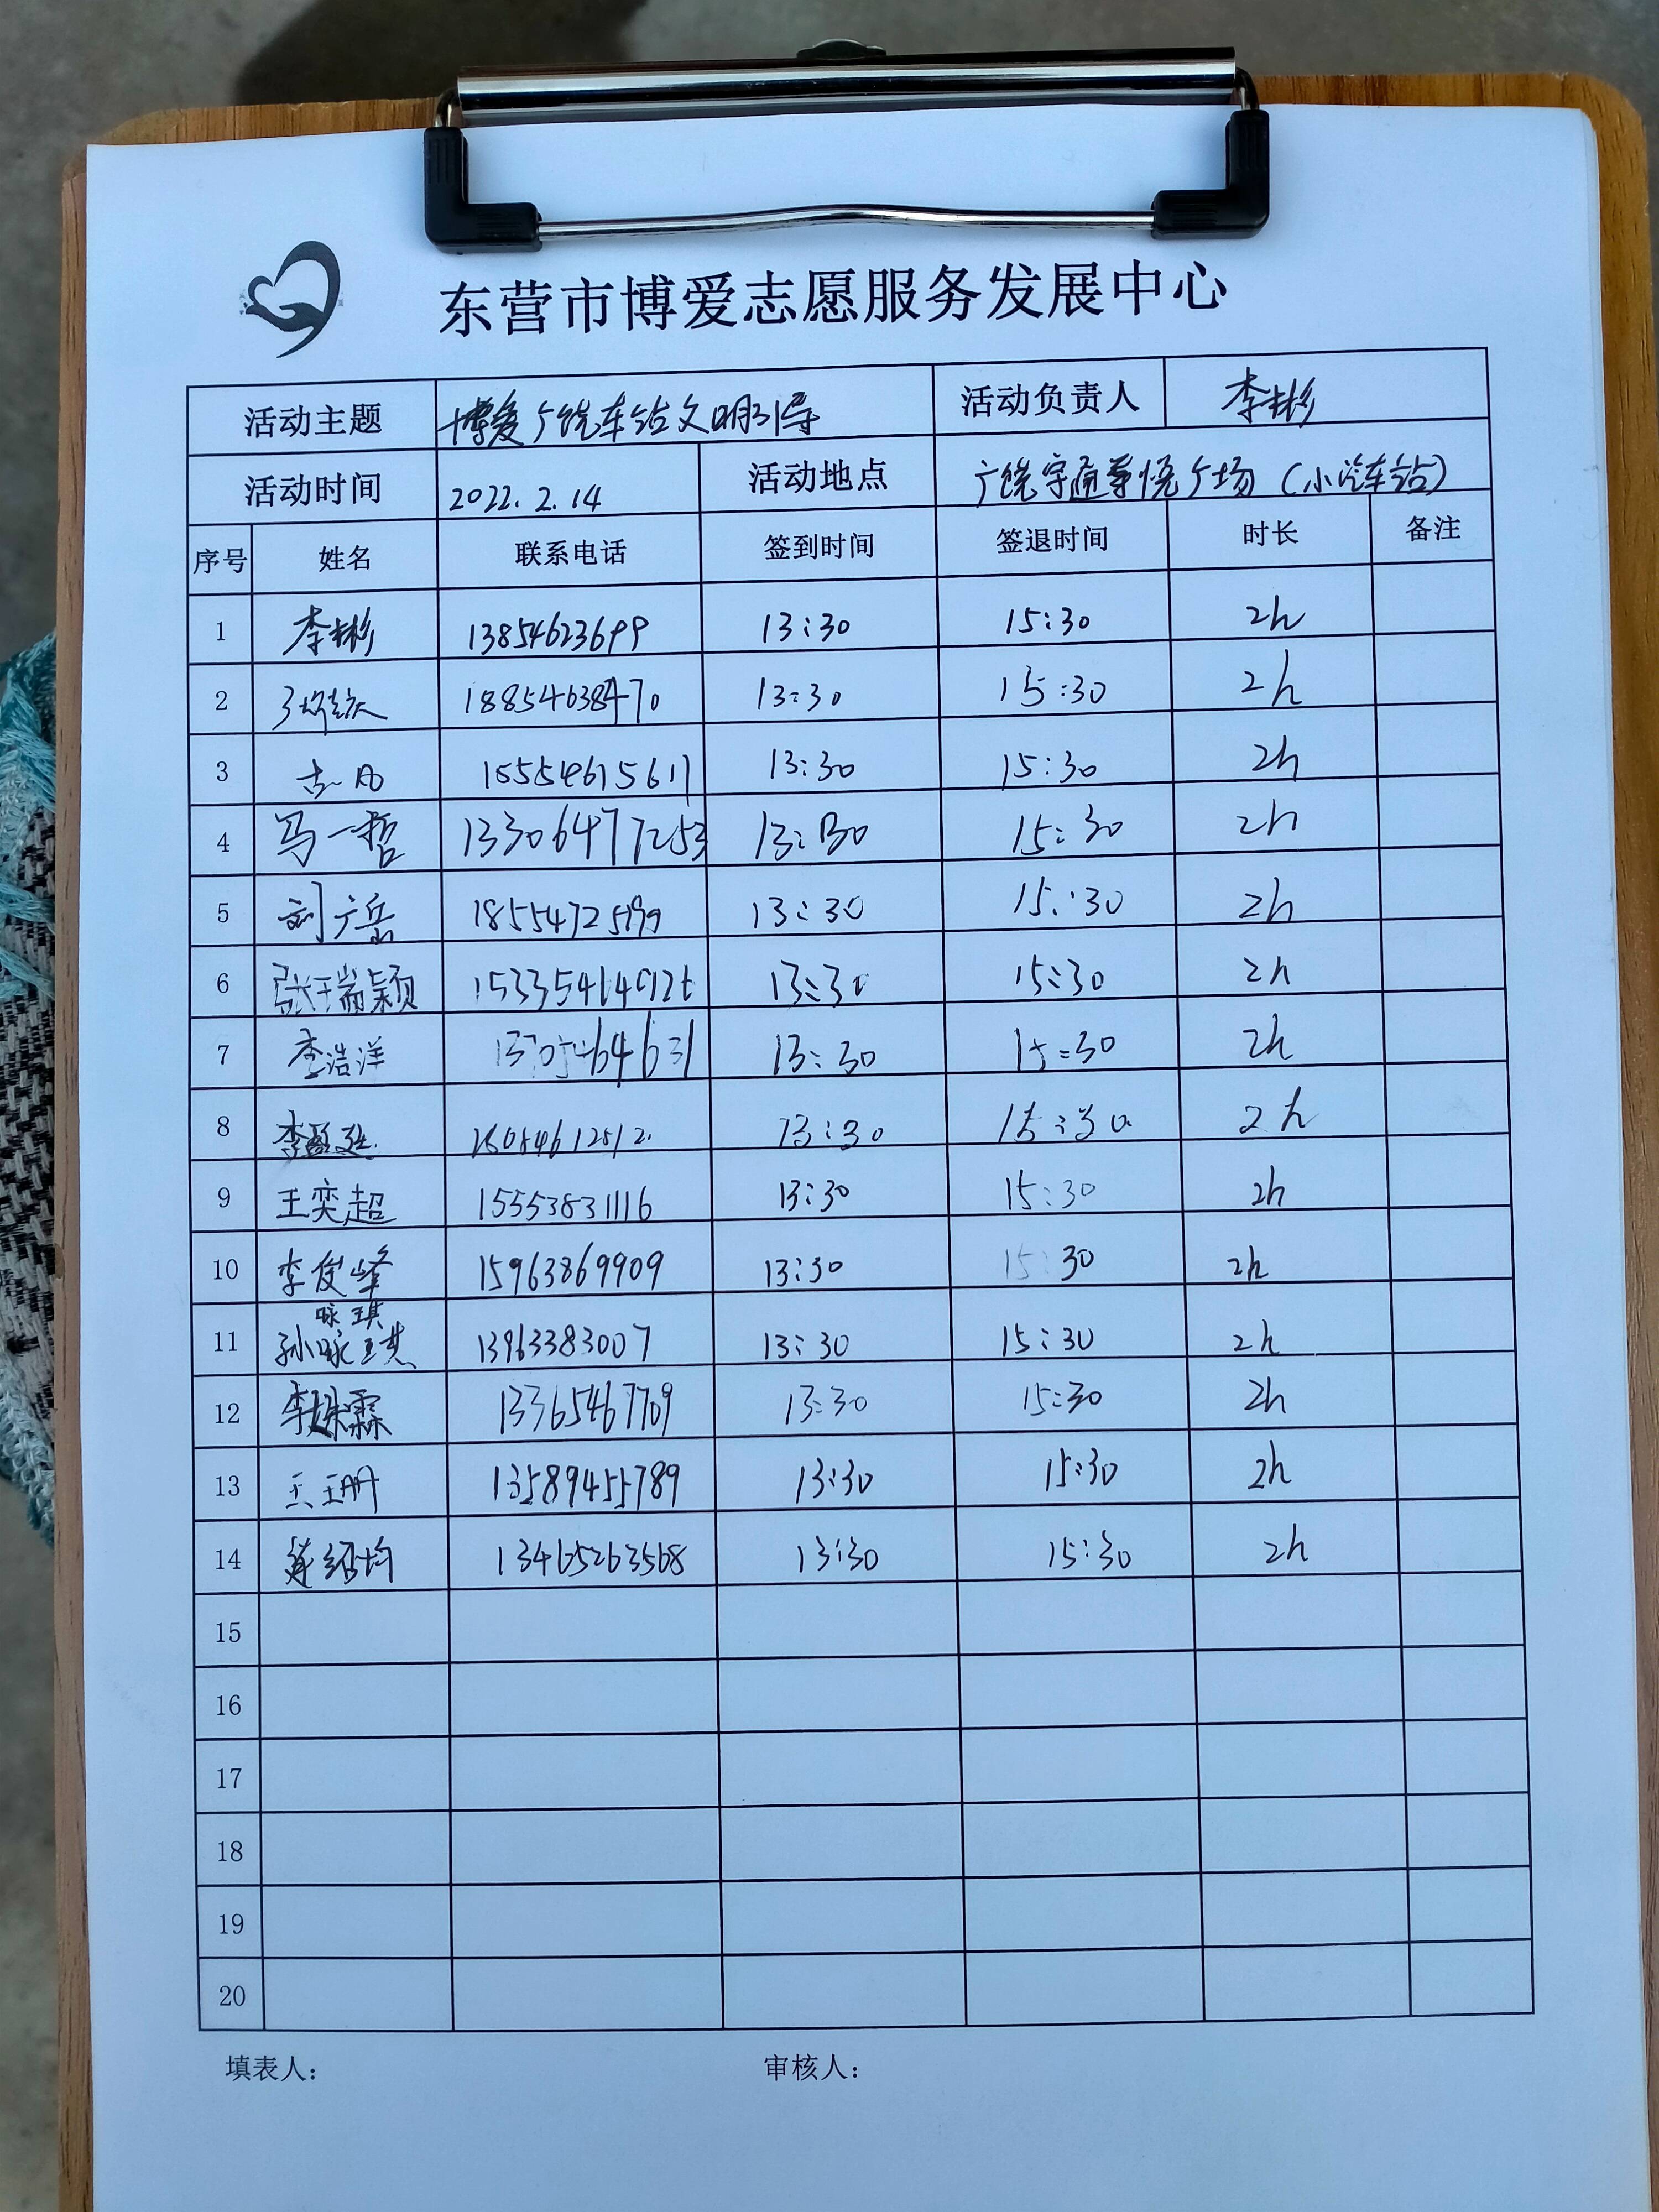 东营市博爱志愿服务发展中心
活动主题 博爱广饶车站文明引导 活动负责人 李彬
活动时间 2022.2.14 活动地点 广饶宇通尊悦广场（小汽车站）
序号 姓名 联系电话 签到时间 签退时间 时长 备注
1 李彬 13854623699 13:30 15:30 2h
2 18854638470 13:30 15:30 2h
3 13:30 15:30 2h
4 马一哲 13306477253 13:30 15:30 2h
5 刘广岳 13:30 15:30 2h
6 张瑞颖 13:30 15:30 2h
7 李浩洋 13:30 15:30 2h
8 13:30 15:30 2h
9 王奕超 15553831116 13:30 15:30 2h
10 李俊峰 15963869909 13:30 15:30 2h
咏琪
11 孙咏琪 13963383007 13:30 15:30 2h
12 李姝霖 13365467709 13:30 15:30 2h
13 王珊 13589455789 13:30 15:30 2h
14 13465263568 13:30 15:30 2h
15
16
17
18
19
20
填表人： 审核人：